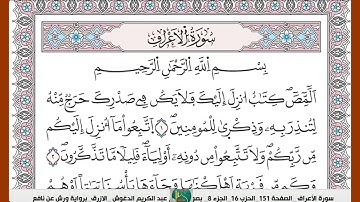 سُورَةُ الْأَعْرَافِ
بِسْمِ اللَّهِ الرَّحْمَٰنِ الرَّحِيمِ
أَلَٓمِّٓصَٓ كِتَٰبٌ انزِلَ إِلَيْكَ فَلَا يَكُن فِي صَدْرِكَ حَرَجٌ مِّنْهُ
لِتُنذِرَ بِهِۦ وَذِكْرَىٰ لِلْمُومِنِينَۖ ١ اَ۪تَّبِعُواْ مَآ أُنزِلَ إِلَيْكُم
مِّن رَّبِّكُمْ وَلَا تَتَّبِعُواْ مِن دُونِهِۦٓ أَوْلِيَآءَۖ قَلِيلٗا مَّا تَذَّكَّرُونَۖ ٢
وَكَم مِّن قَرْيَةٍ اَهْلَكْنَٰهَا فَجَآءَهَا بَأْسُنَا بَيَٰتاً اَوْ هُمْ
سورة الأعراف _الصفحة 151_ الحزب 16_ الجزء 8_ بصو عبد الكريم الدغوش _الازرق_ برواية ورش عن نافع